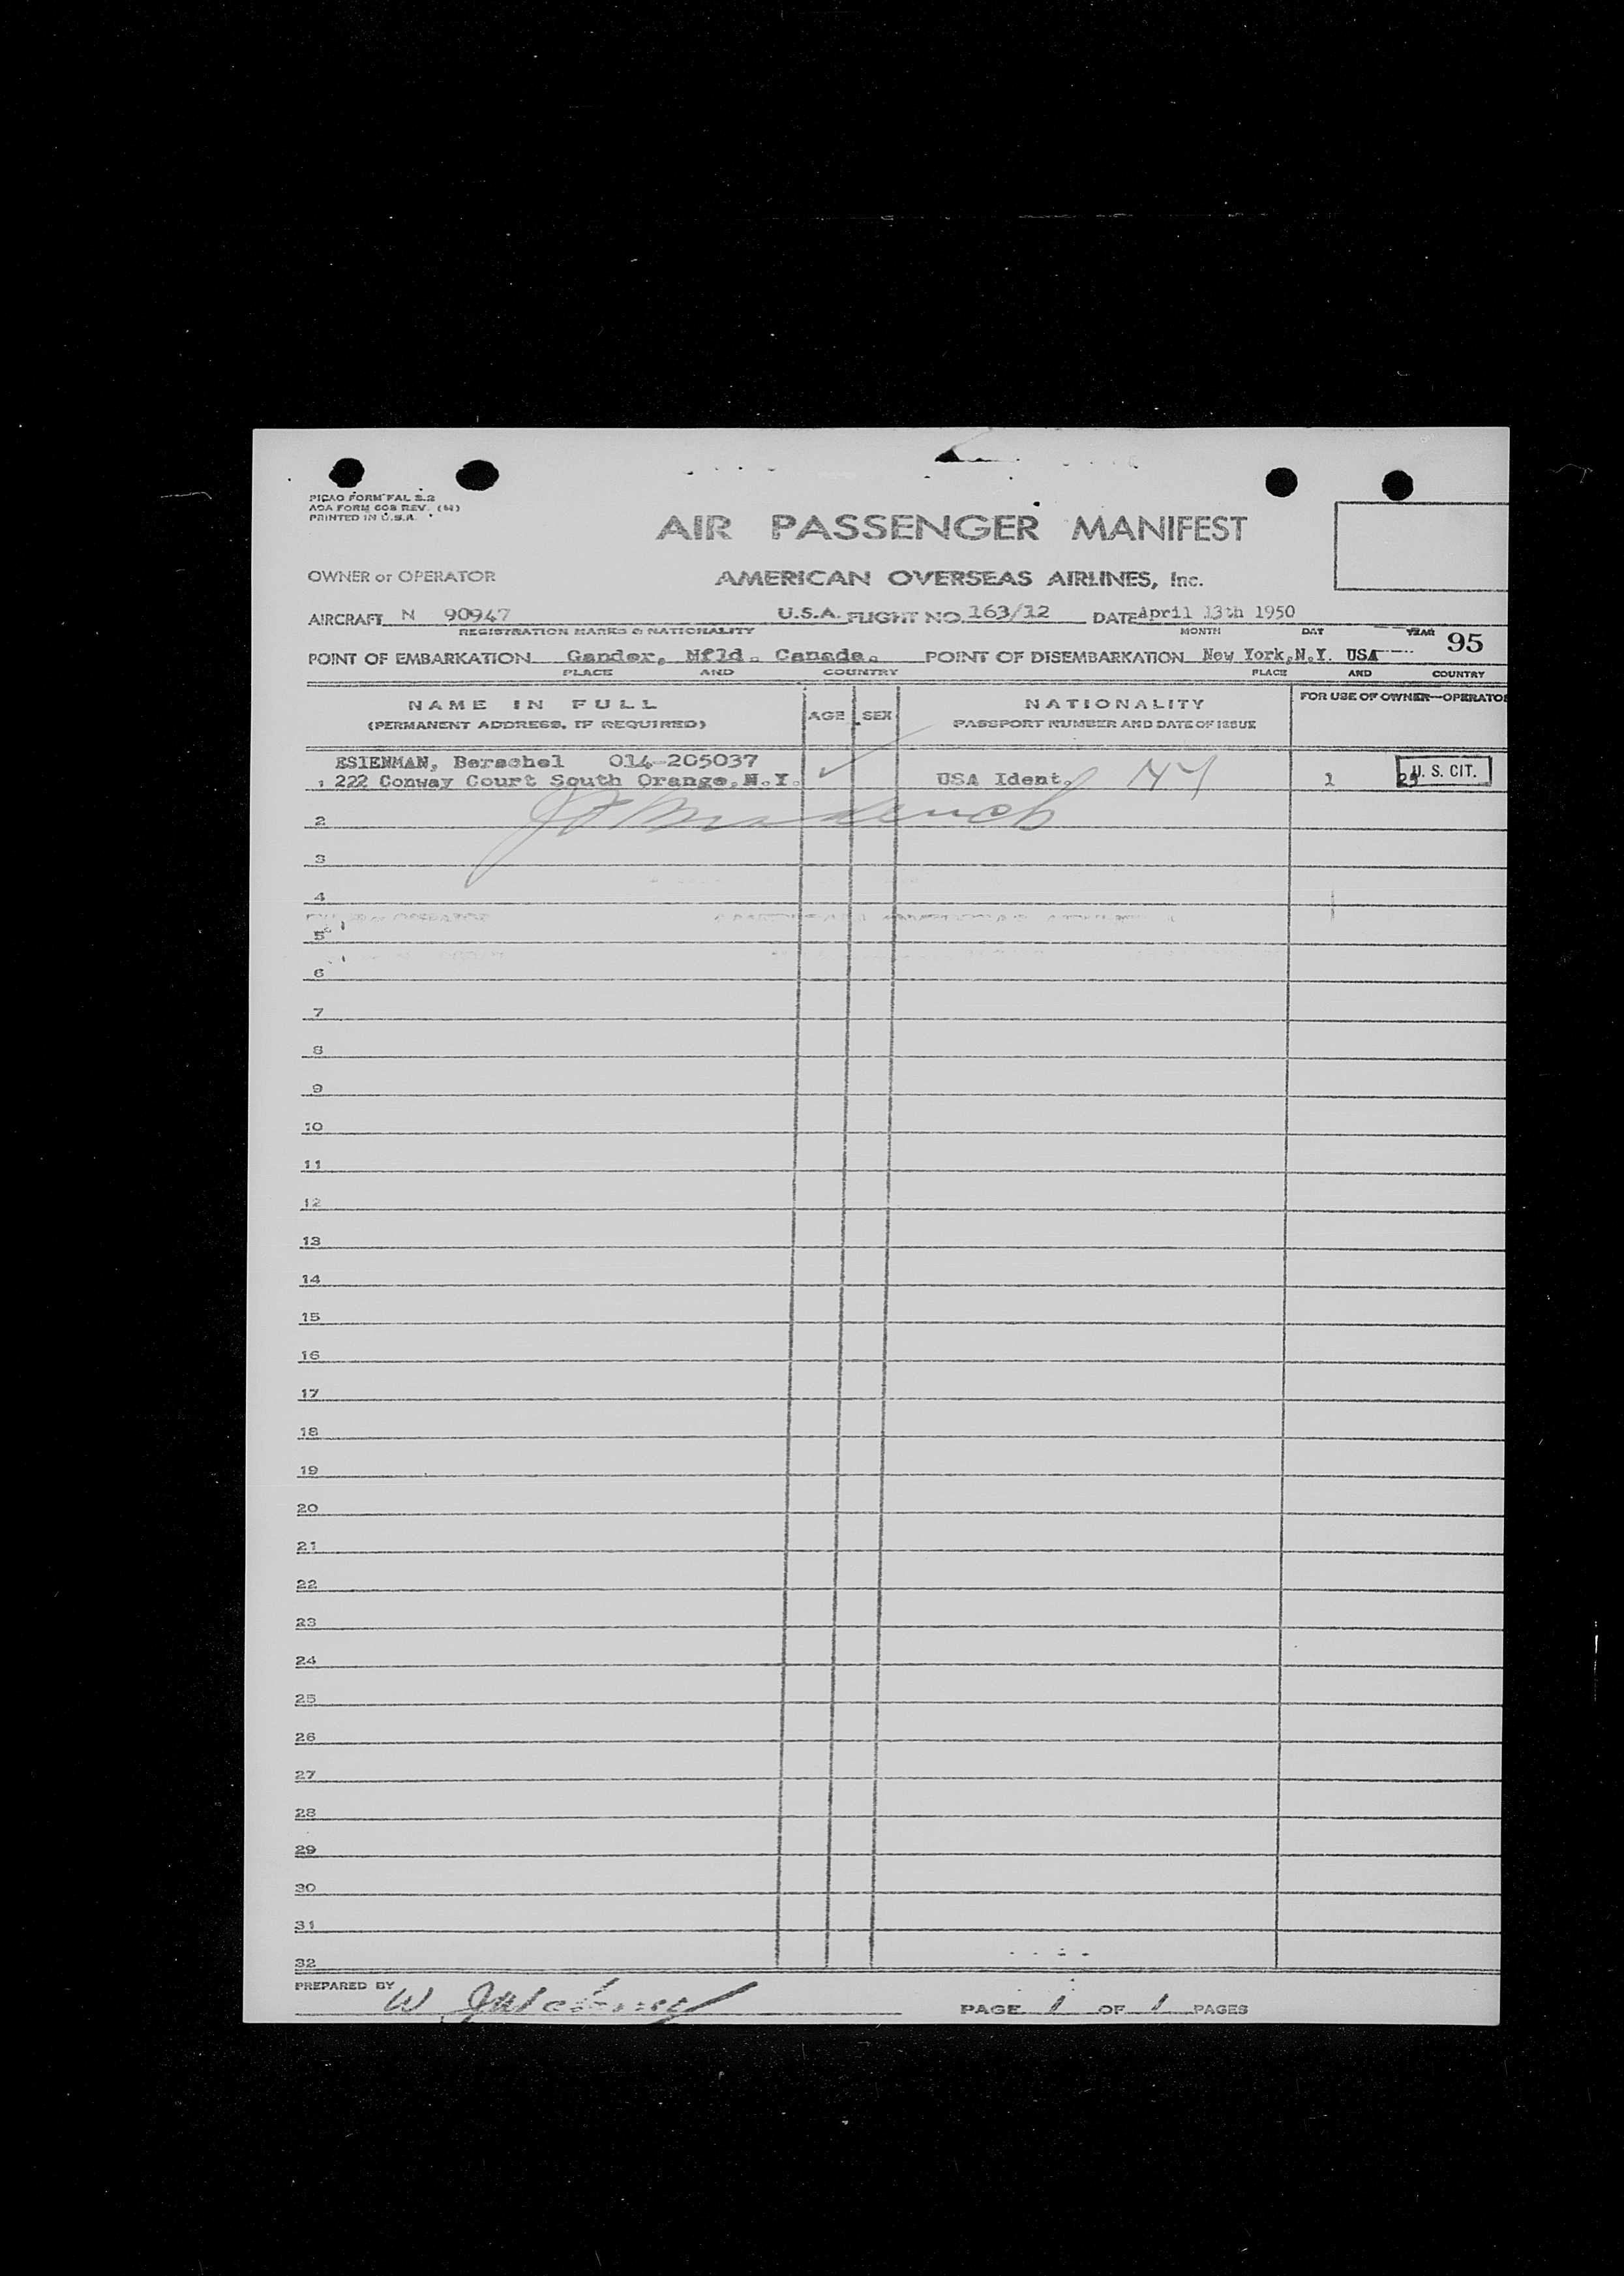 PICAO FORM FAL 2.2
AOA FORM 608 REV. (M)
PRINTED IN U.S.A.
AIR PASSENGER MANIFEST
OWNER or OPERATOR AMERICAN OVERSEAS AIRLINES, Inc.
AIRCRAFT N 90947 U.S.A. FLIGHT NO. 163/12 DATE April 13th 1950
REGISTRATION MARKS & NATIONALITY MONTH DAY YEAR
95
POINT OF EMBARKATION Gander, Nfld. Canada. POINT OF DISEMBARKATION New York,N.Y. USA
PLACE AND COUNTRY PLACE AND COUNTRY
NAME IN FULL AGE SEX NATIONALITY FOR USE OF OWNER—OPERATOR
(PERMANENT ADDRESS, IF REQUIRED) PASSPORT NUMBER AND DATE OF ISSUE
ESIENMAN, Berschel 014-205037
1 222 Conway Court South Orange,N.Y. USA Ident. 1 U. S. CIT.
2
3
4
5
6
7
8
9
10
11
12
13
14
15
16
17
18
19
20
21
22
23
24
25
26
27
28
29
30
31
32
PREPARED BY W
PAGE 1 OF 1 PAGES